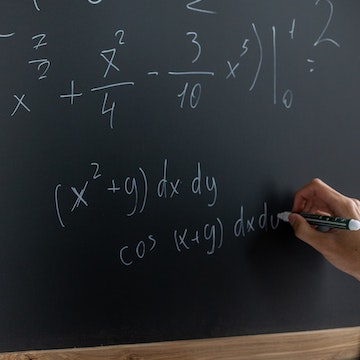 x^{7/2} + x^2/4 - 3/10 x^5) |_0^1 =
(x^2+y) dx dy
cos (x+y) dx dy